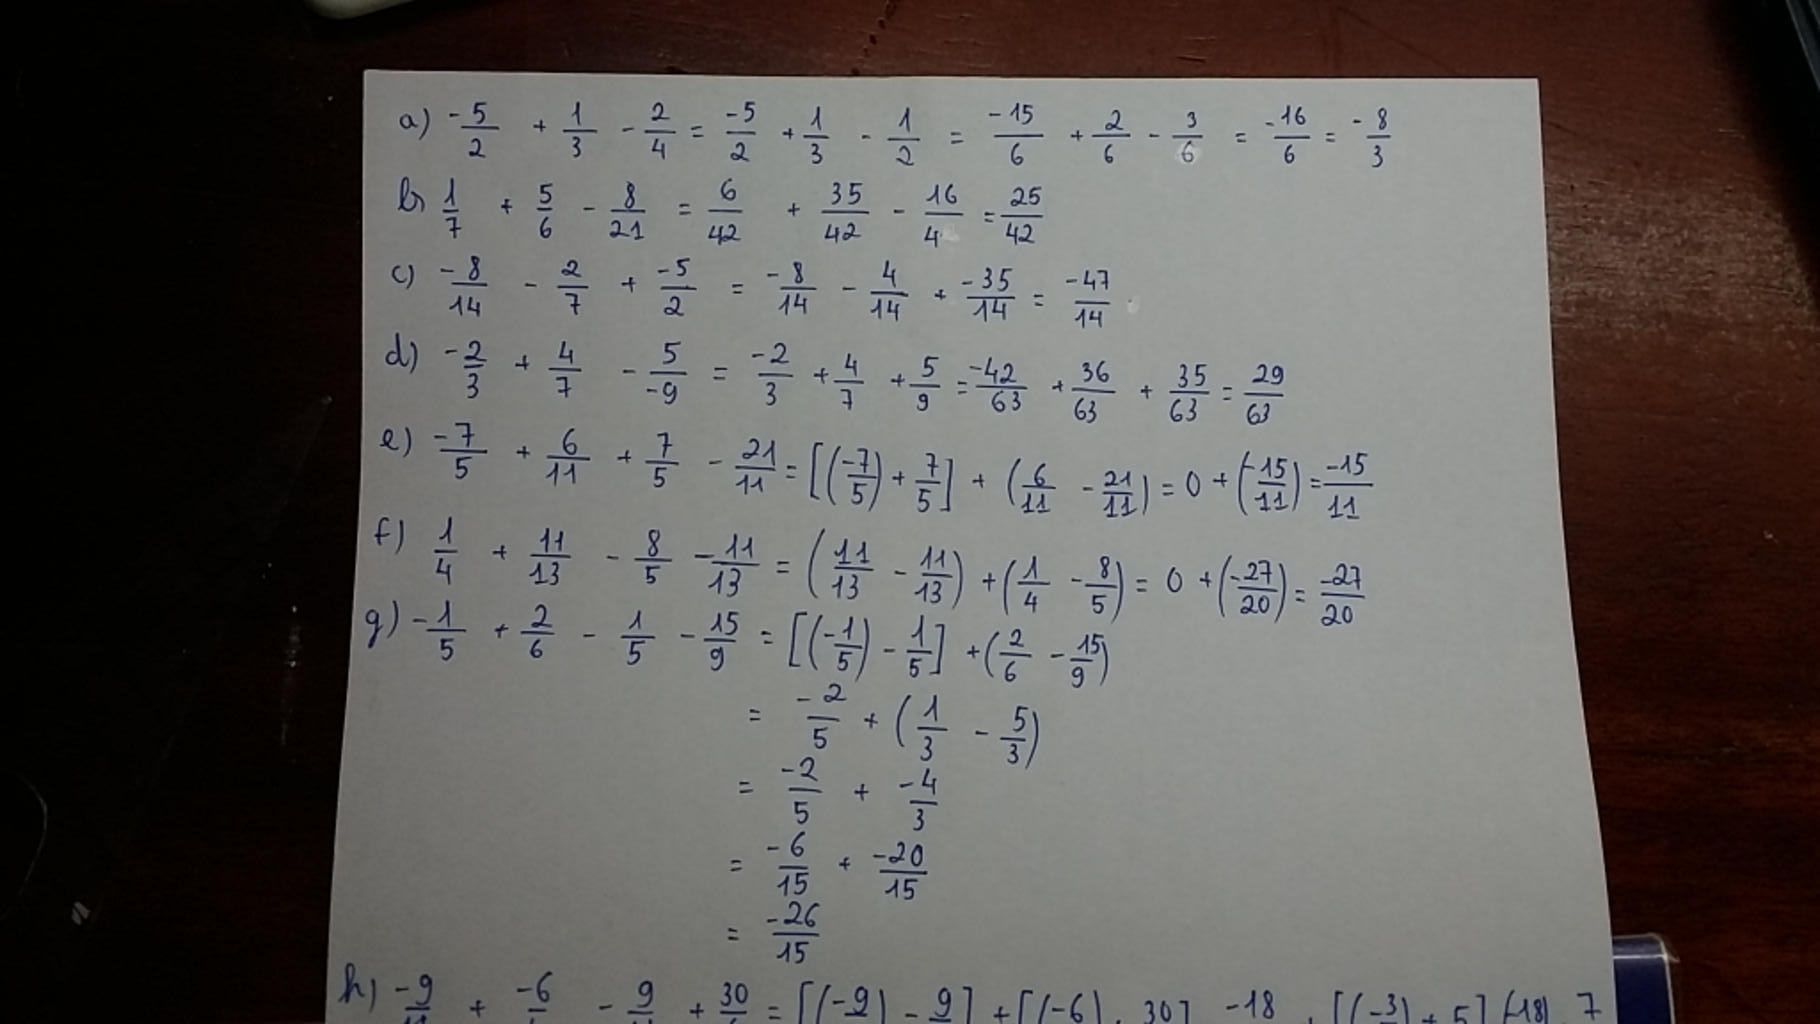 a) -5/2 + 1/3 - 2/4 = -5/2 + 1/3 - 1/2 = -15/6 + 2/6 - 3/6 = -16/6 = -8/3
b) 1/7 + 5/6 - 8/21 = 6/42 + 35/42 - 16/4 = 25/42
c) -8/14 - 2/7 + -5/2 = -8/14 - 4/14 + -35/14 = -47/14
d) -2/3 + 4/7 - 5/-9 = -2/3 + 4/7 + 5/9 = -42/63 + 36/63 + 35/63 = 29/63
e) -7/5 + 6/11 + 7/5 - 21/11 = [(-7/5) + 7/5] + (6/11 - 21/11) = 0 + (-15/11) = -15/11
f) 1/4 + 11/13 - 8/5 - 11/13 = (11/13 - 11/13) + (1/4 - 8/5) = 0 + (-27/20) = -27/20
g) -1/5 + 2/6 - 1/5 - 15/9 = [(-1/5) - 1/5] + (2/6 - 15/9)
= -2/5 + (1/3 - 5/3)
= -2/5 + -4/3
= -6/15 + -20/15
= -26/15
h) -9 + -6 - 9 + 30 = [(-9) - 9] + [(-6) 30] -18 [(-3) + 5] (-18) 7